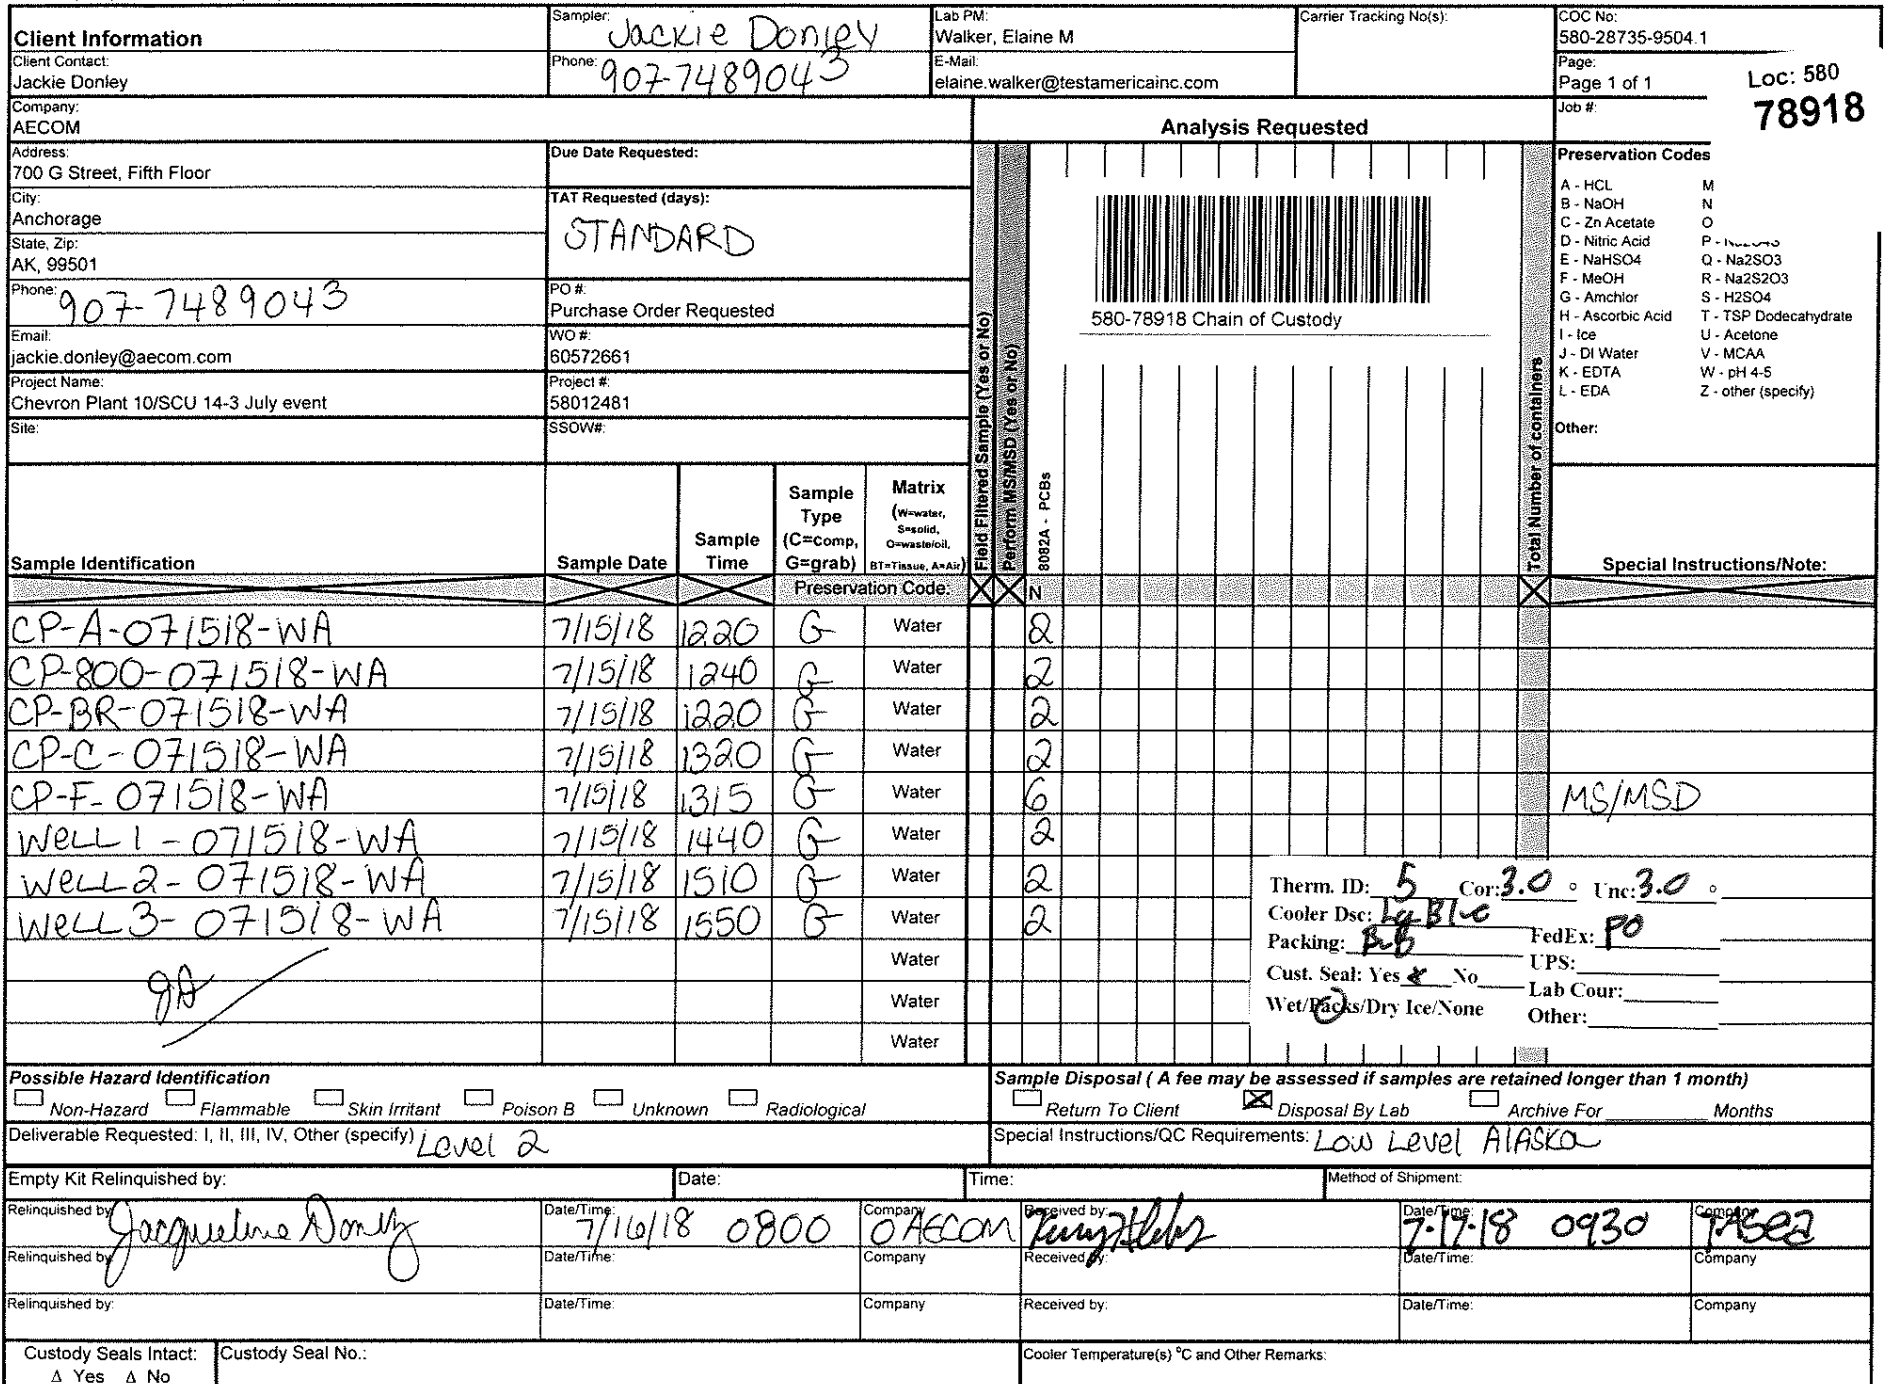 Client Information
Sampler: Jackie Donley
Lab PM:
Walker, Elaine M
Carrier Tracking No(s):
COC No:
580-28735-9504.1
Client Contact:
Jackie Donley
Phone: 907-7489043
E-Mail:
elaine.walker@testamericainc.com
Page:
Page 1 of 1
Loc: 580
78918
Company:
AECOM
Analysis Requested
Job #:
Address:
700 G Street, Fifth Floor
Due Date Requested:
City:
Anchorage
TAT Requested (days):
STANDARD
State, Zip:
AK, 99501
Phone: 907-7489043
PO #:
Purchase Order Requested
Email:
jackie.donley@aecom.com
WO #:
60572661
Project Name:
Chevron Plant 10/SCU 14-3 July event
Project #:
58012481
Site:
SSOW#:
Field Filtered Sample (Yes or No)
Perform MS/MSD (Yes or No)
8082A - PCBs
580-78918 Chain of Custody
Total Number of containers
Preservation Codes
A - HCL M
B - NaOH N
C - Zn Acetate O
D - Nitric Acid P -
E - NaHSO4 Q - Na2SO3
F - MeOH R - Na2S2O3
G - Amchlor S - H2SO4
H - Ascorbic Acid T - TSP Dodecahydrate
I - Ice U - Acetone
J - DI Water V - MCAA
K - EDTA W - pH 4-5
L - EDA Z - other (specify)
Other:
Sample Identification
Sample Date
Sample Time
Sample Type (C=comp, G=grab)
Matrix (W=water, S=solid, O=waste/oil, BT=Tissue, A=Air)
Special Instructions/Note:
Preservation Code: X X N X
CP-A-071518-WA 7/15/18 1220 G Water 2
CP-800-071518-WA 7/15/18 1240 G Water 2
CP-BR-071518-WA 7/15/18 1220 G Water 2
CP-C-071518-WA 7/15/18 1320 G Water 2
CP-F-071518-WA 7/15/18 1315 G Water 6 MS/MSD
WELL 1-071518-WA 7/15/18 1440 G Water 2
WELL 2-071518-WA 7/15/18 1510 G Water 2
WELL 3-071518-WA 7/15/18 1550 G Water 2
Water
JD Water
Water
Therm. ID: 5 Cor: 3.0 ° Unc: 3.0 °
Cooler Dsc: Lg Blue
Packing: Bub FedEx: PO
UPS:
Cust. Seal: Yes X No
Lab Cour:
Wet/Packs/Dry Ice/None
Other:
Possible Hazard Identification
Non-Hazard Flammable Skin Irritant Poison B Unknown Radiological
Sample Disposal ( A fee may be assessed if samples are retained longer than 1 month)
Return To Client X Disposal By Lab Archive For Months
Deliverable Requested: I, II, III, IV, Other (specify) Level 2
Special Instructions/QC Requirements: Low Level Alaska
Empty Kit Relinquished by: Date: Time: Method of Shipment:
Relinquished by: Jacqueline Donley Date/Time: 7/16/18 0800 Company AECOM Received by: Date/Time: 7-17-18 0930 Company TASea
Relinquished by: Date/Time: Company Received by: Date/Time: Company
Relinquished by: Date/Time: Company Received by: Date/Time: Company
Custody Seals Intact:
Δ Yes Δ No
Custody Seal No.:
Cooler Temperature(s) °C and Other Remarks: